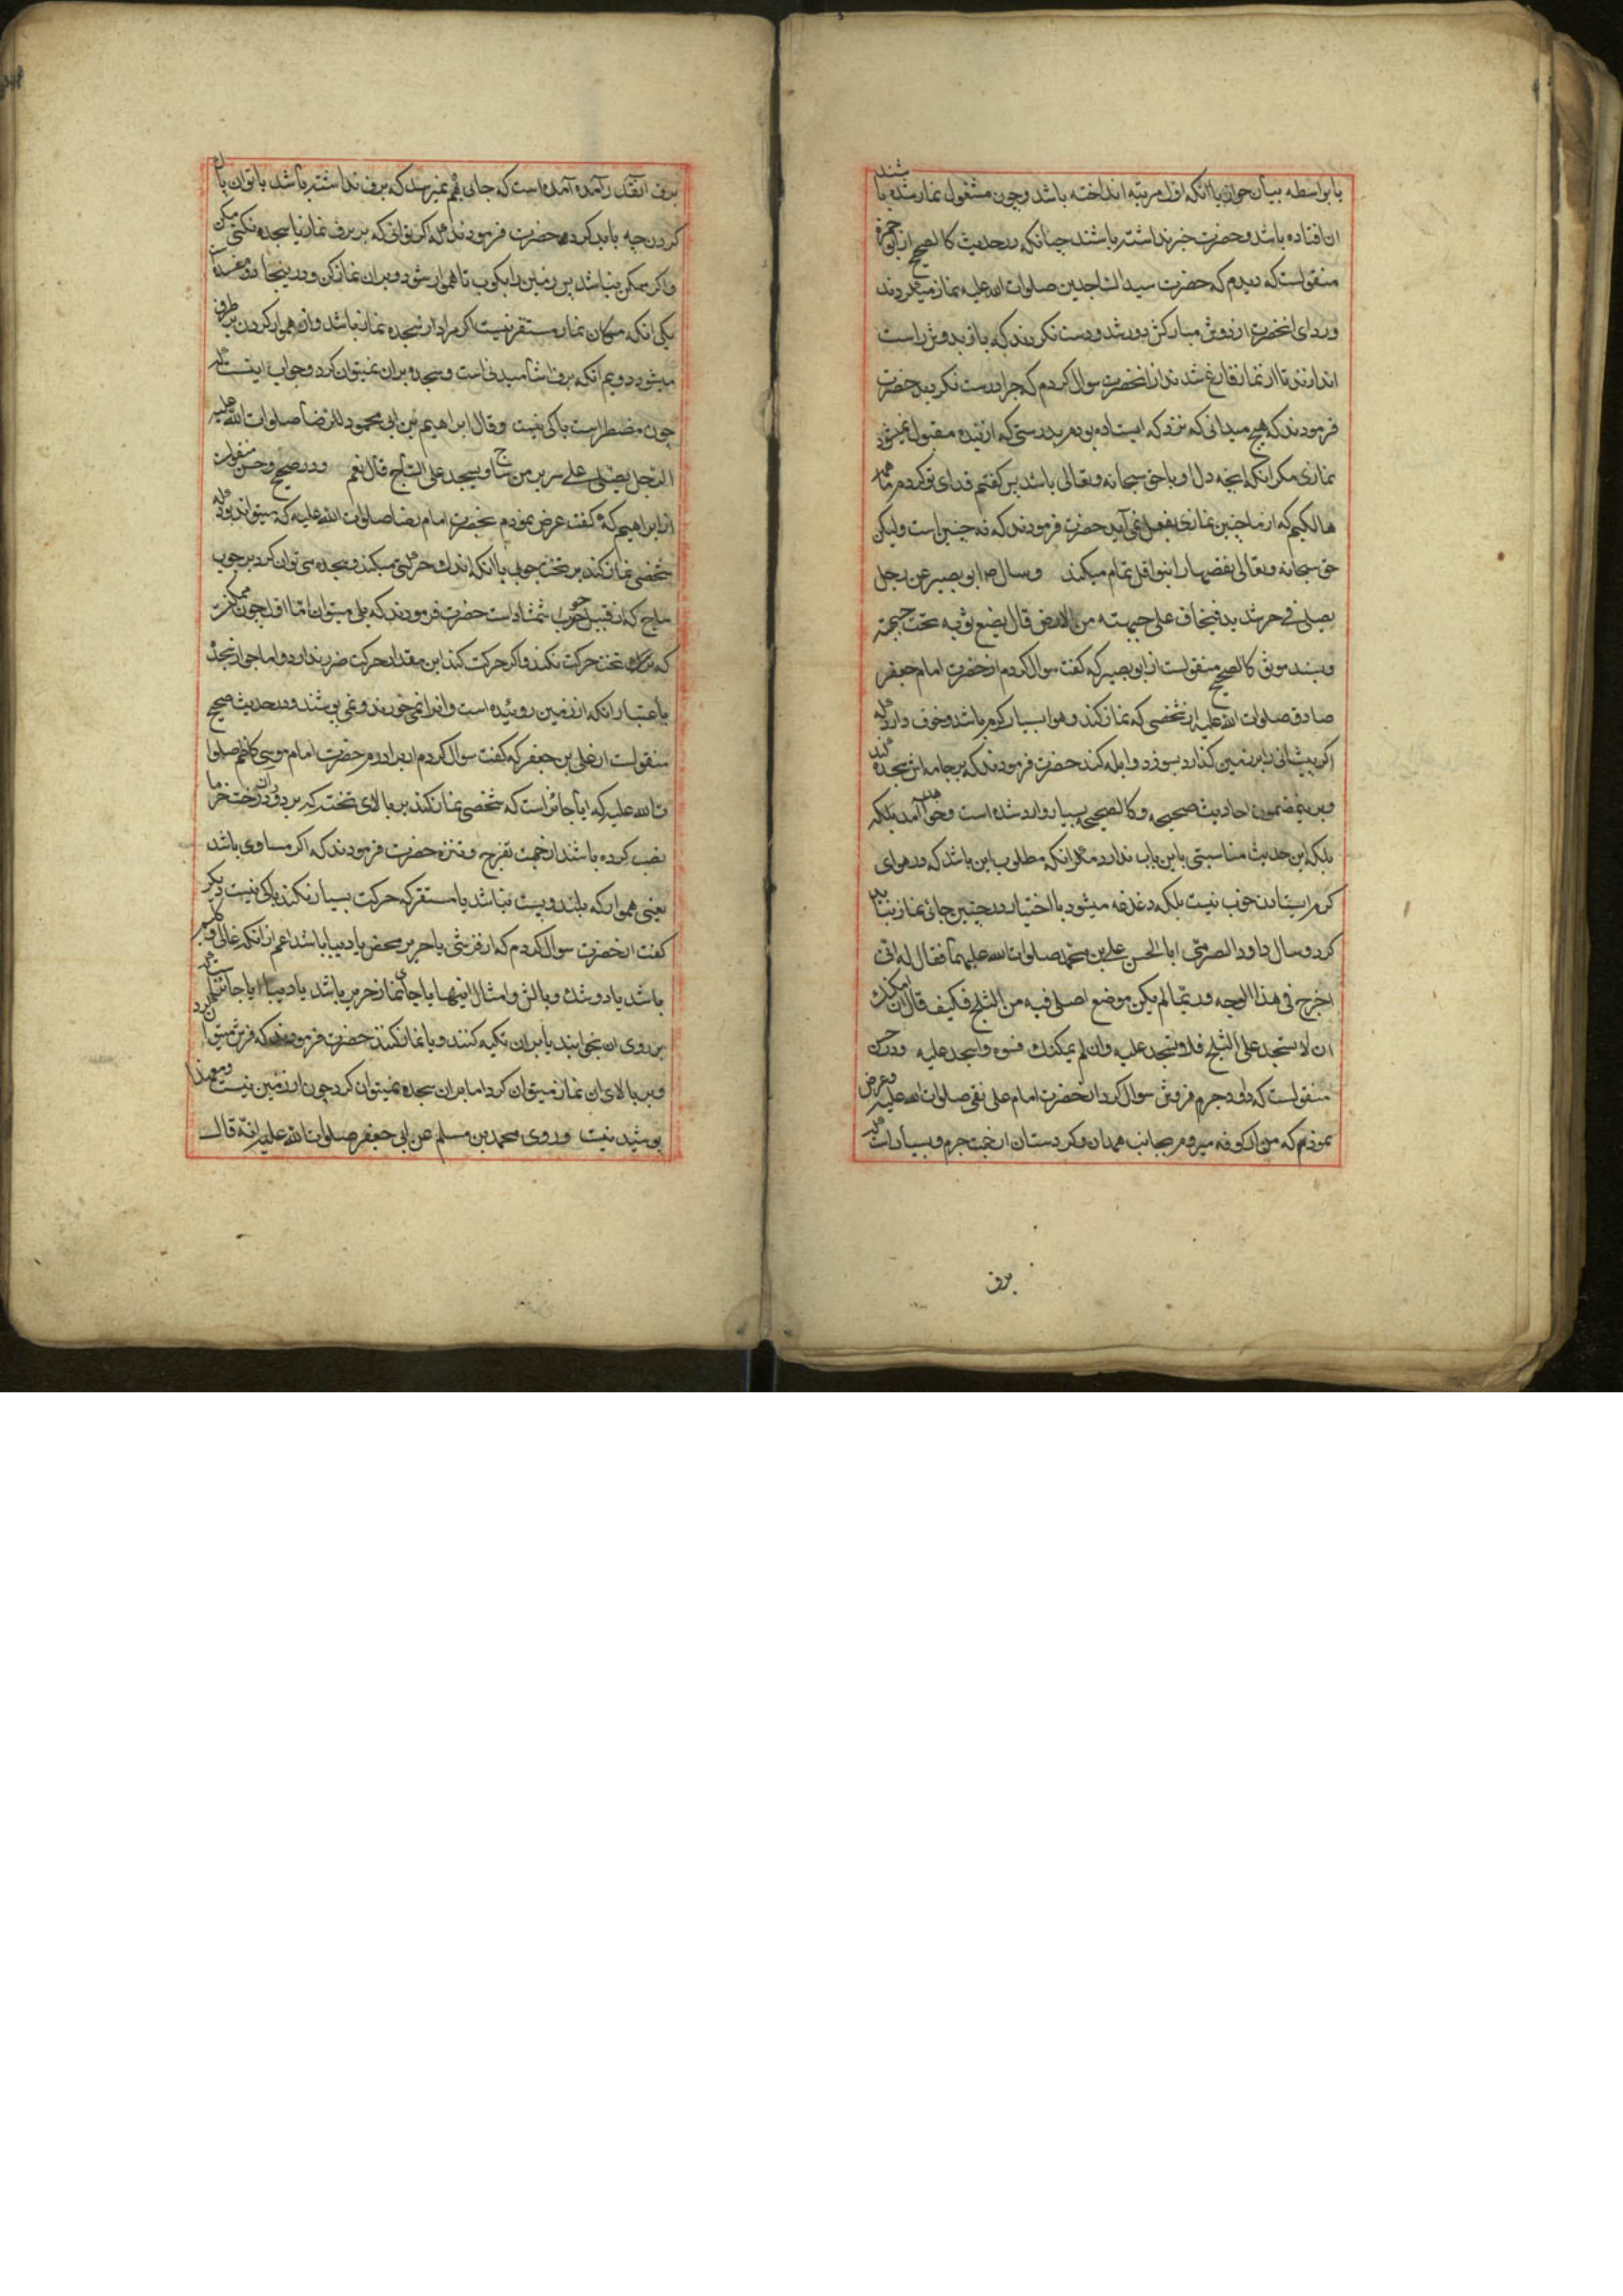 یا بواسطه بیان جواز یا آنکه اول مرتبه انداخته باشد و چون مشغول نماز شده باشند
ان افتاده باشد و حضرت خبر نداشته باشند چنانکه در حدیث کالصحیح از ابو حمزه
منقولست که دیدم که حضرت سید الساجدین صلوات الله علیه نماز میکردند
و ردای انحضرت از دوش مبارکش دور شد و دست نکردند که باز بدوش راست
اندازند تا از نماز فارغ شدند از انحضرت سوال کردم که چرا درست نکردید حضرت
فرمودند که هیچ میدانی که نزد که ایستاده بودم بدرستی که از بنده مقبول نمیشود
نمازی مکر آنکه انچه دل او با حق سبحانه و تعالی باشد پس کفتم فدای تو کردم ما همه
هالکیم که از ما چنین نمازی بفعل نمی آید حضرت فرمودند که نه چنین است ولیکن
حق سبحانه و تعالی نقصها را بنوافل تمام میکند و سال ابو بصیر عن رجل
یصلی فی حر شدید فیخاف علی جبهته من الارض قال یضع ثوبه تحت جبهته
و بسند موثق کالصحیح منقولست از ابو بصیر که کفت سوال کردم از حضرت امام جعفر
صادق صلوات الله علیه از شخصی که نماز کند و هوا بسیار کرم باشد و خوف دارد که
اکر پیشانی را بر زمین کذارد بسوزد و ابله کند حضرت فرمودند که بر جامه اش سجده کند
و برینمضمون احادیث صحیحه و کالصحیحه بسیار وارد شده است و خواهد آمد بلکه
بلکه این حدیث مناسبتی باین باب ندارد مکر آنکه مطلوب این باشد که در هوای
کرم ایستادن خوب نیست بلکه دغدغه میشود با اختیار در چنین جائی نماز نباید
کرد و سال داود الصرمی ابا الحسن علی بن محمد صلوات الله علیهما فقال له انی
اخرج فی هذا الوجه و ربما لم یکن موضع اصلی فیه من الثلج فکیف قال ان امکنک
ان لا تسجد علی الثلج فلا تسجد علیه و ان لم یمکنک فسوه و اسجد علیه و در حسن
منقولست که داود جرم فروش سوال کرد از حضرت امام علی نقی صلوات الله علیه و عرض
نمودم که من از کوفه میروم بجانب همدان و کردستان از جهت جرم و بسیار است که
برف
برف انقدر آمده آمده است که جائی بهم نمیرسد که برف نداشته باشد یا توان پاک
کردن چه باید کرد حضرت فرمودند که اکر توانی که بر برف نماز یا سجده نکنی مکن
و اکر ممکن نباشد پس زمین را بکوب تا هموار شود و بر ان نماز کن و در ینجا دو مفسده است
یکی آنکه مکان نماز مستقر نیست اکر مراد از سجده نماز باشد و از هموار کردن بر طرف
میشود دویم آنکه برف اشامیدنی است و سجده بر ان نمیتوان کرد و جواب اینست که
چون مضطر است باکی نیست و قال ابراهیم بن ابی محمود للرضا صلوات الله علیه
الرجل یصلی علی سریر من ساج و یسجد علی الساج قال نعم و در صحیح و حسن منقولست
از ابراهیم که کفت عرض نمودم بحضرت امام رضا صلوات الله علیه که میتواند بود که
شخصی نماز کند بر تخت چوبی با آنکه اندک حرکتی میکند و سجده می توان کرد بر چوب
ساج که از قبیل چوب شمشاد است حضرت فرمودند که بلی میتوان اما اول چون ممکنست
که تخت حرکت نکند و اکر حرکت کند این مقدار حرکت ضرر ندارد و اما جواز سجده
باعتبار آنکه از زمین روئیده است و انرا نمی خورند و نمی پوشند و در حدیث صحیح
منقولست از علی بن جعفر که کفت سوال کردم از برادرم حضرت امام موسی کاظم صلوا
ت الله علیه که ایا جائز است که شخصی نماز کند بر بالای تخته که بر دو درخت خرما
نصب کرده باشند از جهت تفرج و تنزه حضرت فرمودند که اکر مساوی باشد
یعنی هموار که بلند و پست نباشد یا مستقر که حرکت بسیار نکند باکی نیست دیکر
کفت از حضرت سوال کردم که از فرشی یا حریر محض یا دیبا باشد اعم از آنکه غالی و
باشد یا دوشک و بالش و امثال اینها یا جای نماز حریر باشد یا دیبا ایا جائز
بر روی ان بخوابند یا بر ان تکیه کنند و یا نماز کنند حضرت فرمودند که فرش میتوا
و بر بالای ان نماز میتوان کرد اما بر ان سجده نمیتوان کرد چون از زمین نیست و معهذا
پوشیدنیست و روی محمد بن مسلم عن ابی جعفر صلوات الله علیه انه قال